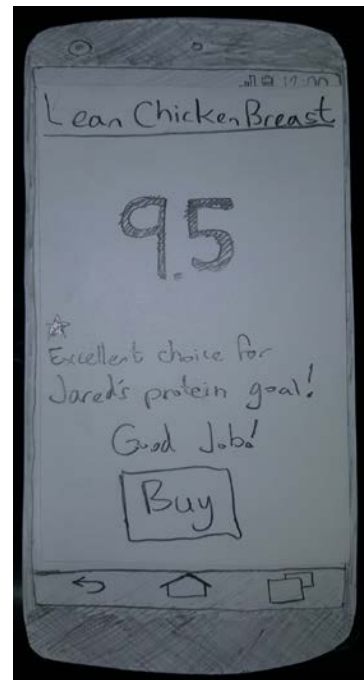 Lean Chicken Breast
9.5
Excellent choice for
Jared's protein goal!
Good Job!
Buy